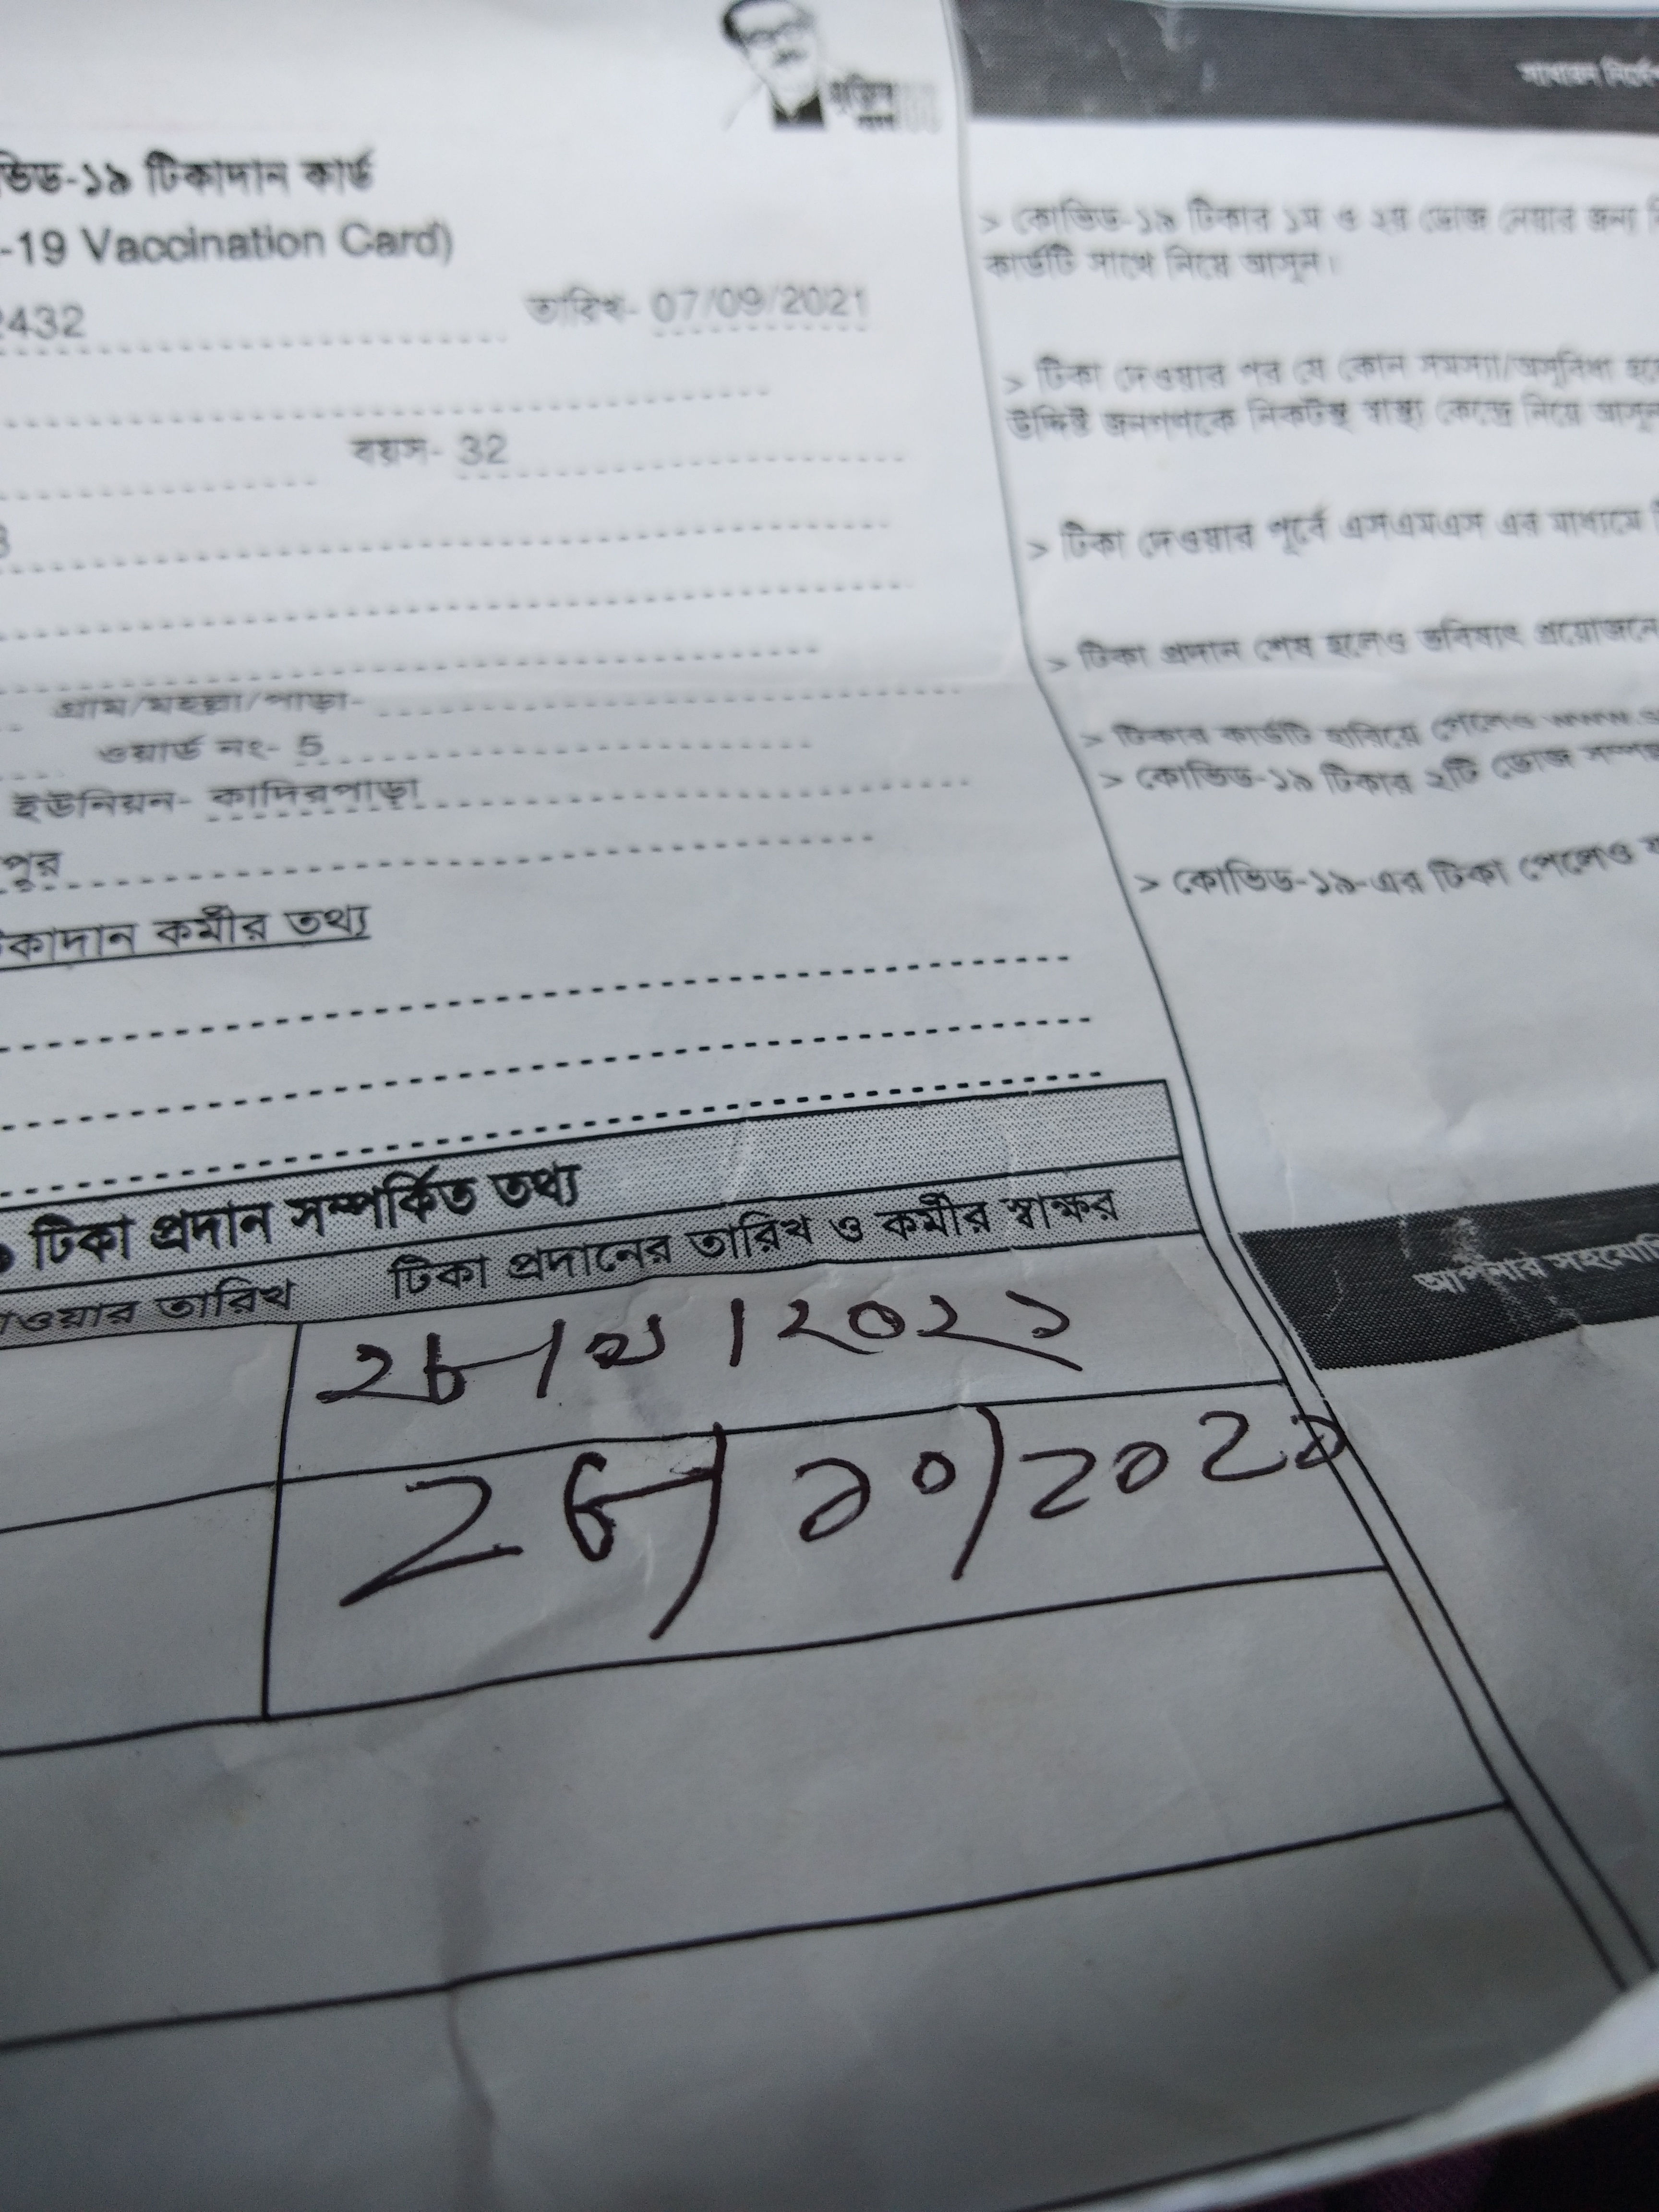 মুজিব
ভিড-১৯ টিকাদান কার্ড
-19 Vaccination Card)
2432 তারিখ- 07/09/2021
বয়স- 32
3
গ্রাম/মহল্লা/পাড়া-
ওয়ার্ড নং- 5
ইউনিয়ন- কাদিরপাড়া
পুর
টিকাদান কর্মীর তথ্য
৯ টিকা প্রদান সম্পর্কিত তথ্য
দেওয়ার তারিখ টিকা প্রদানের তারিখ ও কর্মীর স্বাক্ষর
২৮/৯/২০২১
২৮/১০/২০২১
সাধারন নির্দে
> কোভিড-১৯ টিকার ১ম ও ২য় ডোজ নেয়ার জন্য
কার্ডটি সাথে নিয়ে আসুন।
> টিকা দেওয়ার পর যে কোন সমস্যা/অসুবিধা হলে
উদ্দিষ্ট জনগণকে নিকটস্থ স্বাস্থ্য কেন্দ্রে নিয়ে আসুন
> টিকা দেওয়ার পূর্বে এসএমএস এর মাধ্যমে
> টিকা প্রদান শেষ হলেও ভবিষ্যৎ প্রয়োজনে
> টিকার কার্ডটি হারিয়ে গেলেও www.s
> কোভিড-১৯ টিকার ২টি ডোজ সম্পন্ন
> কোভিড-১৯-এর টিকা পেলেও
আপনার সহযোগি